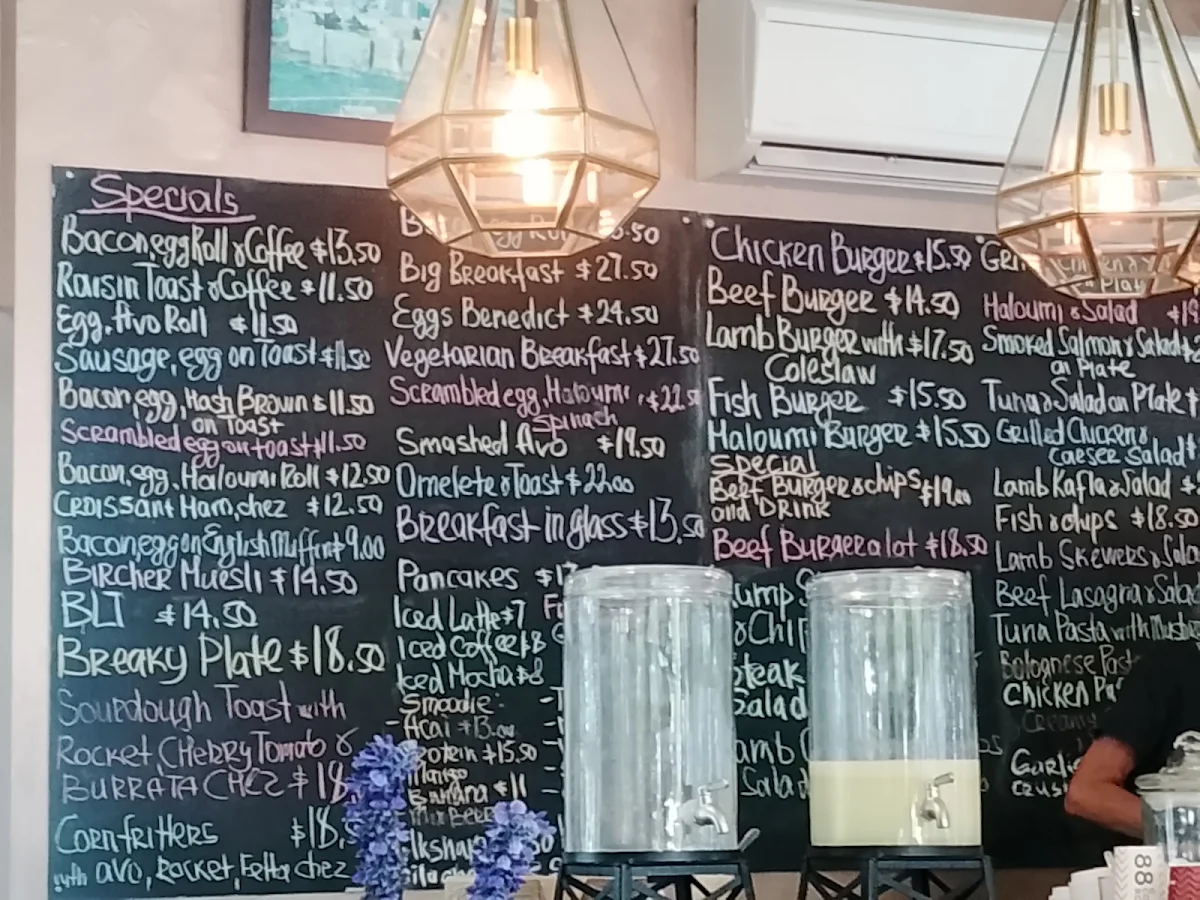 Specials
Bacon,egg Roll & Coffee $13.50
Raisin Toast & Coffee $11.50
Egg, Avo Roll $11.50
Sausage, egg on Toast $11.50
Bacon, egg, Hash Brown $11.50
on Toast
Scrambled egg on toast $11.50
Bacon, egg, Haloumi Roll $12.50
Croissant Ham, chez $12.50
Bacon, egg on English Muffin $9.00
Bircher Muesli $14.50
BLT $14.50
Breaky Plate $18.50
Sourdough Toast with
Rocket, Cherry Tomato &
BURRATA CHEZ $18
Cornfritters $18.5
with avo, Rocket, Fetta chez
Big Breakfast $27.50
Eggs Benedict $24.50
Vegetarian Breakfast $27.50
Scrambled egg, Haloumi, $22.50
Spinach
Smashed Avo $19.50
Omelete & Toast $22.00
Breakfast in glass $13.50
Pancakes $17
Iced Latte $7
Iced Coffee $8
Iced Mocha $8
Smoodie:
Acai $13.00
Protein $15.50
Mango
Banana $11
Mix Berr
lkshap
Chicken Burger $15.50
Beef Burger $14.50
Lamb Burger with $17.50
Coleslaw
Fish Burger $15.50
Haloumi Burger $15.50
Special
Beef Burger & chips $19.00
and Drink
Beef Burger alot $18.50
ump S
& Chi
teak
Salad
amb
Salad
Gri
Plate
Haloumi & Salad $19
Smoked Salmon & Salad $2
on Plate
Tuna & Salad on Plate $
Grilled Chicken &
Caeser Salad $
Lamb Kafta & Salad $
Fish & chips $18.50
Lamb Skewers & Sala
Beef Lasagna & Salad
Tuna Pasta with Mushro
Bolognese Past
Chicken Pa
Creamy
Garli
crus
88